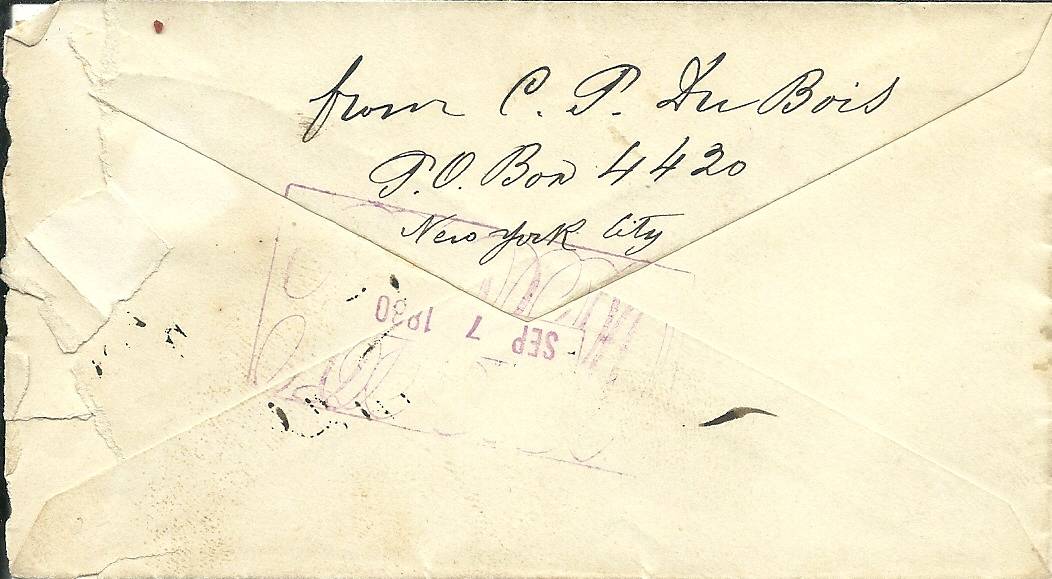 from C. P. Du Bois
P.O. Box 4420
New York City
SEP 7 1880